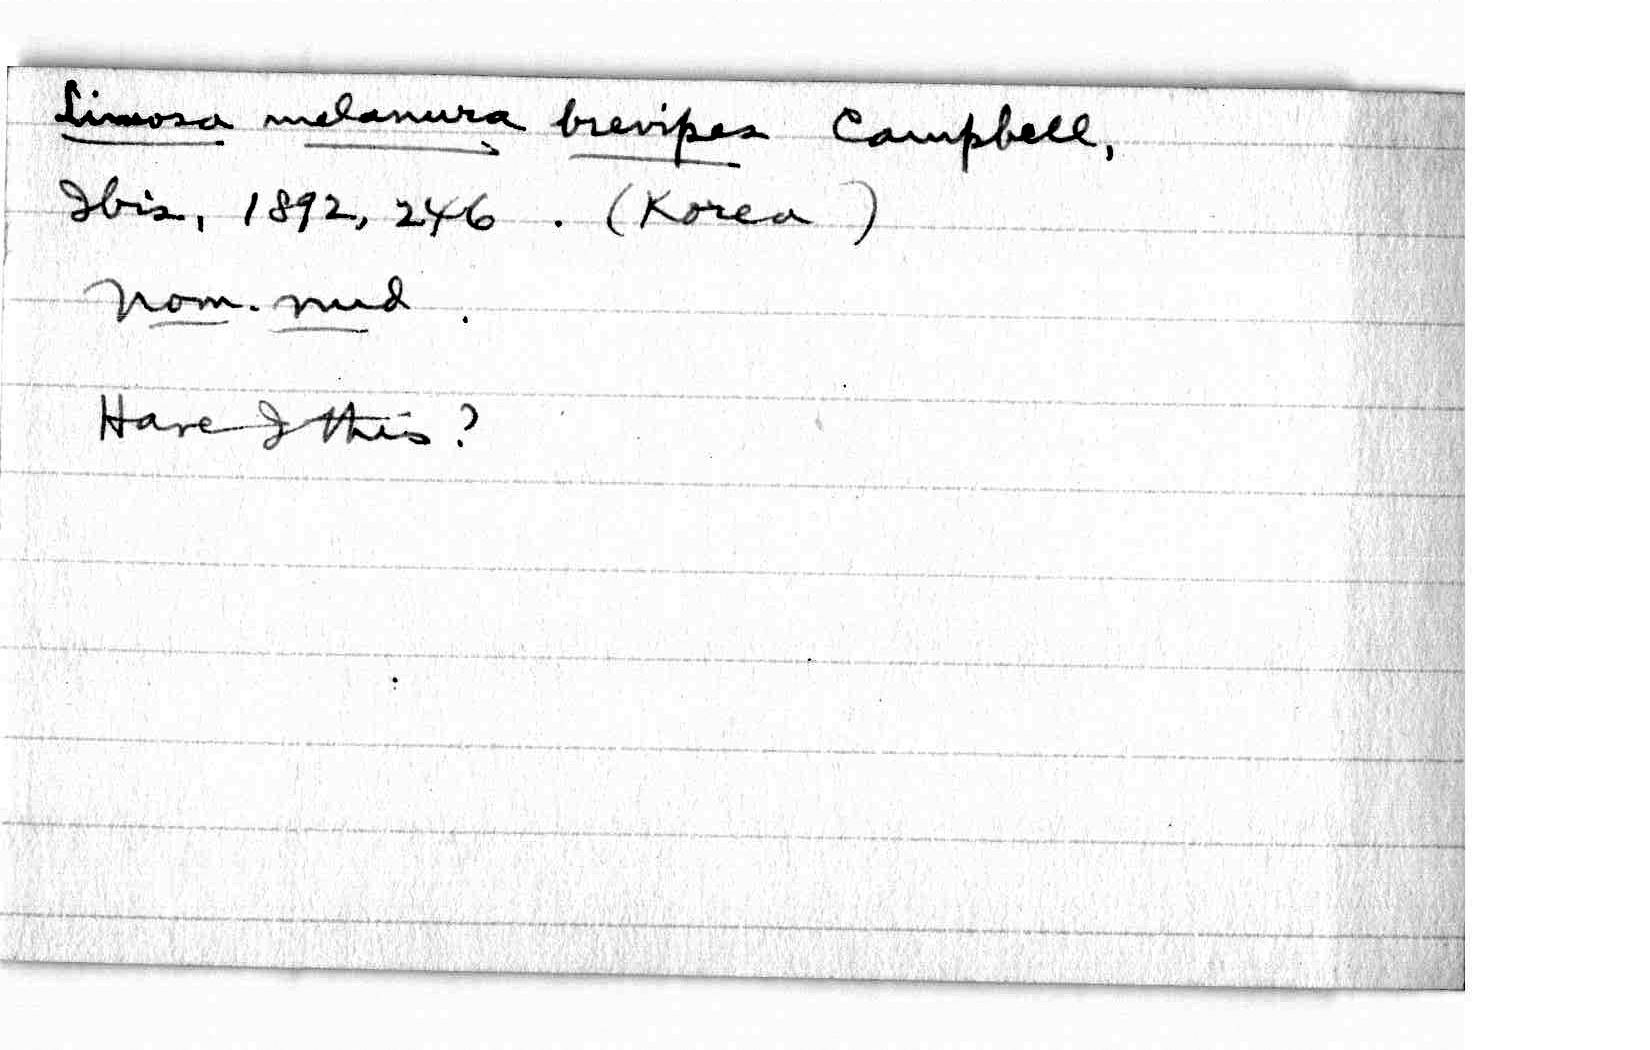 Limosa melanura brevipes Campbell,
Ibis, 1892, 246. (Korea)
Nom. nud.
Have I this?